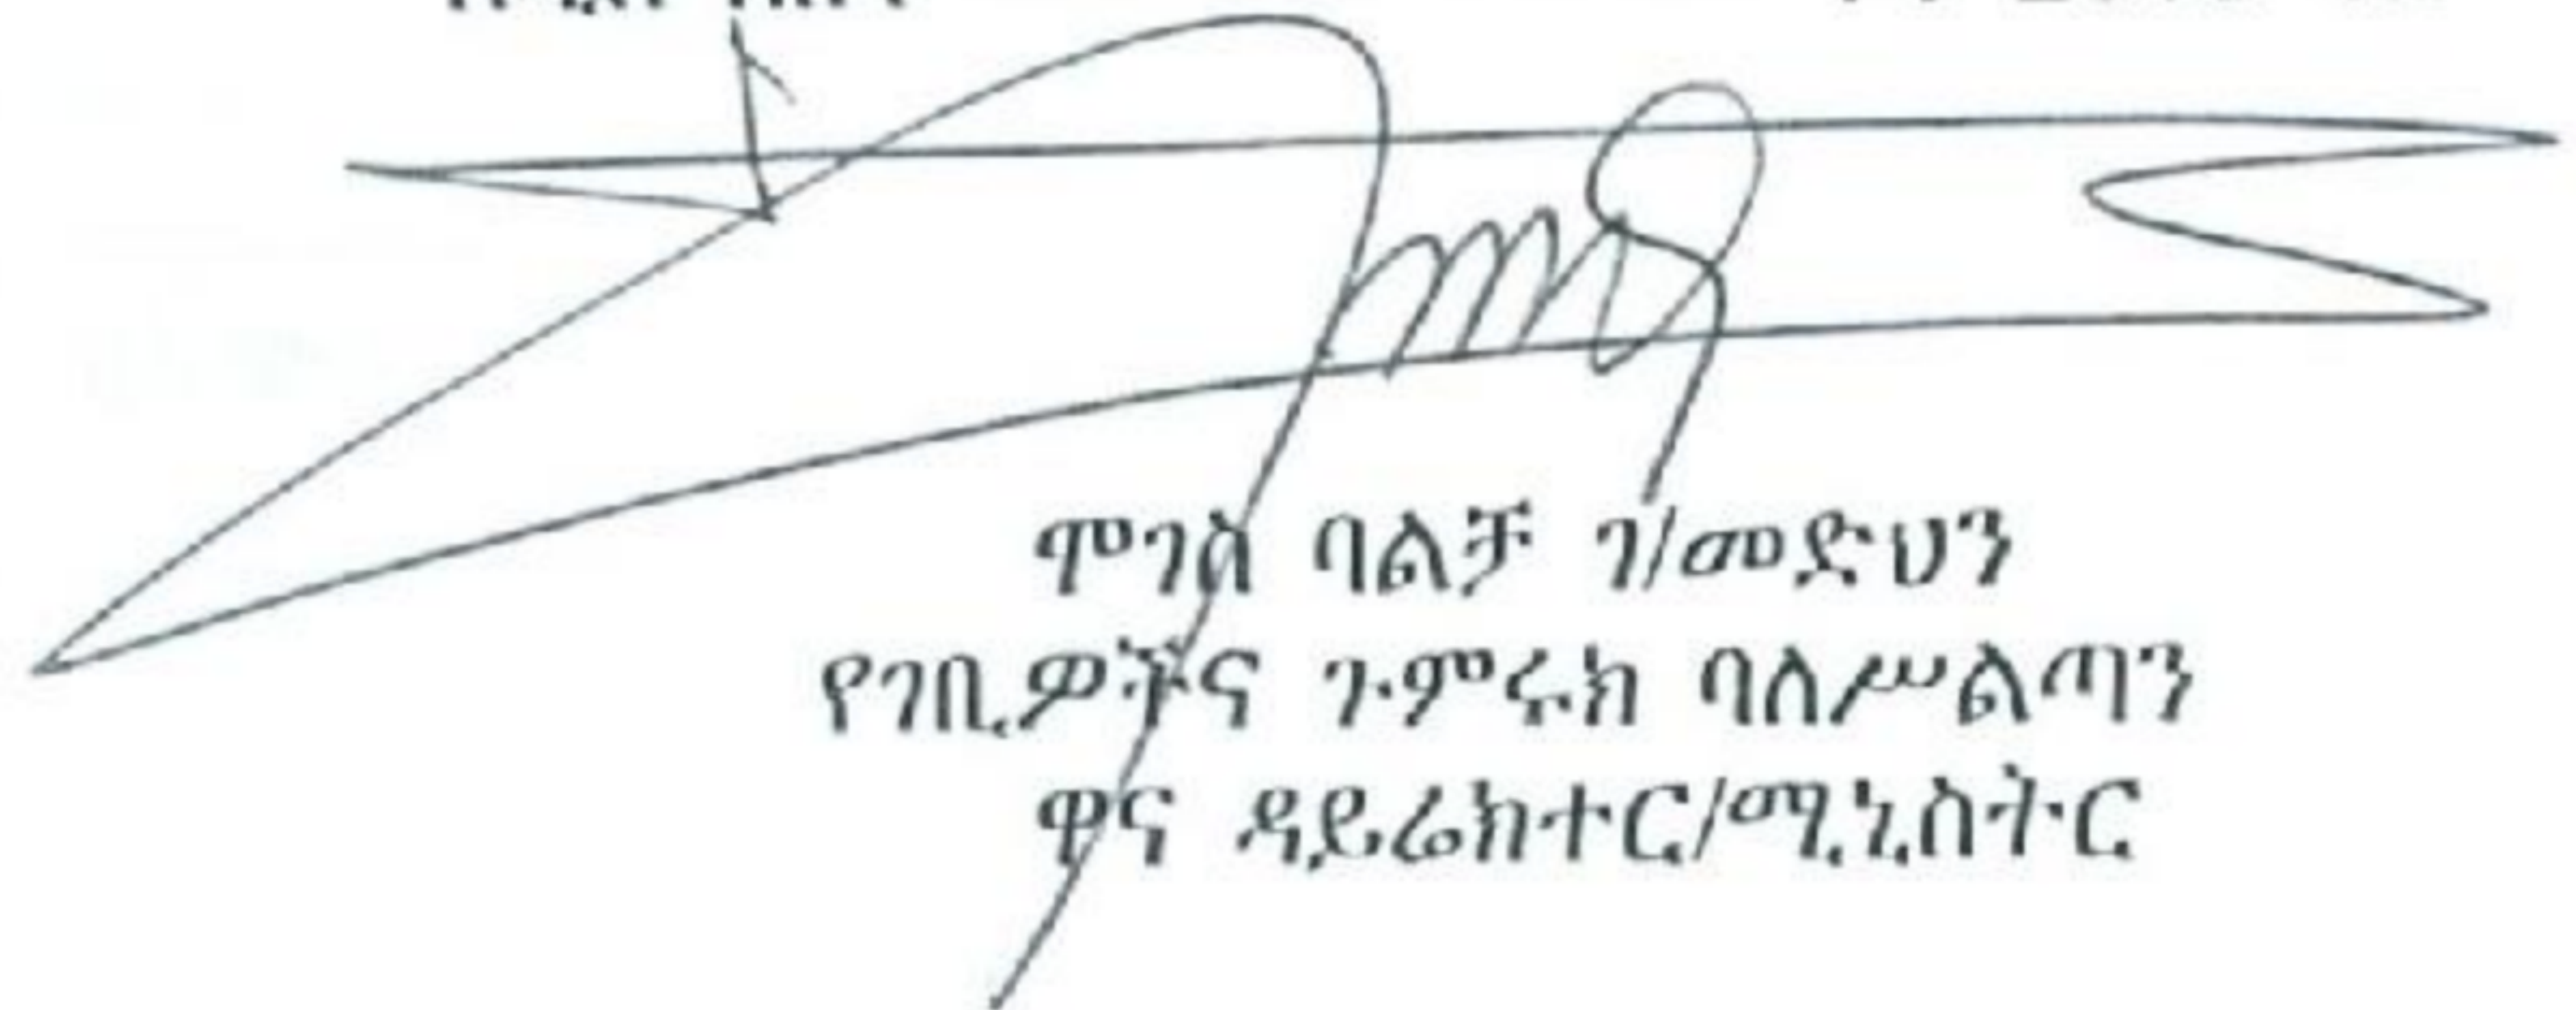 ሞገስ ባልቻ ገ/መድህን
የገቢዎችና ጉምሩክ ባለሥልጣን
ዋና ዳይሬክተር/ሚኒስትር